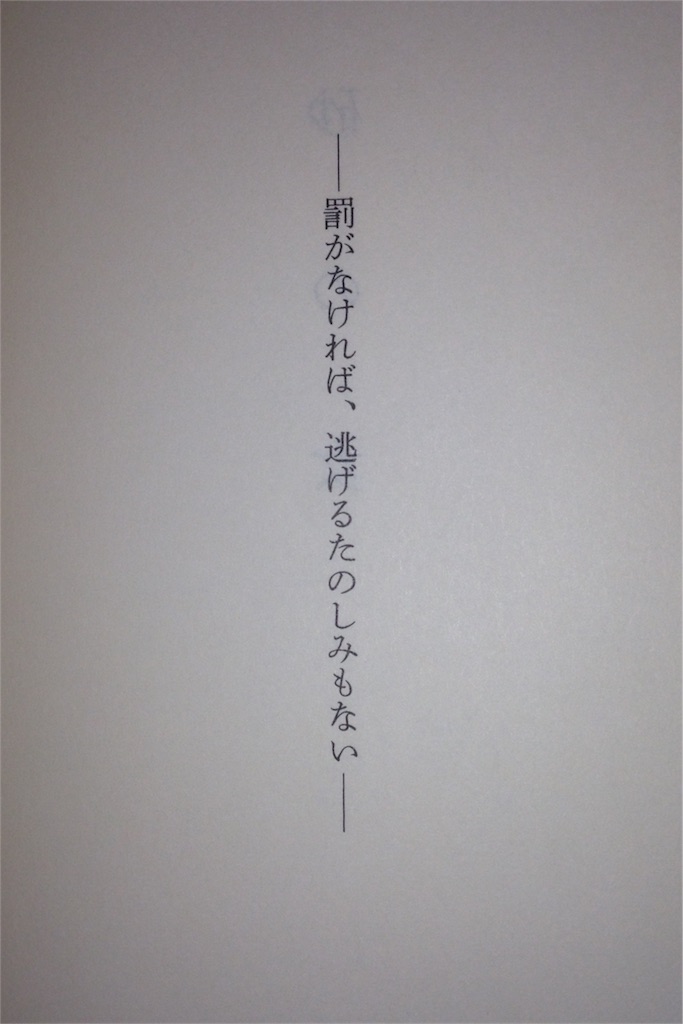 ――罰がなければ、逃げるたのしみもない――